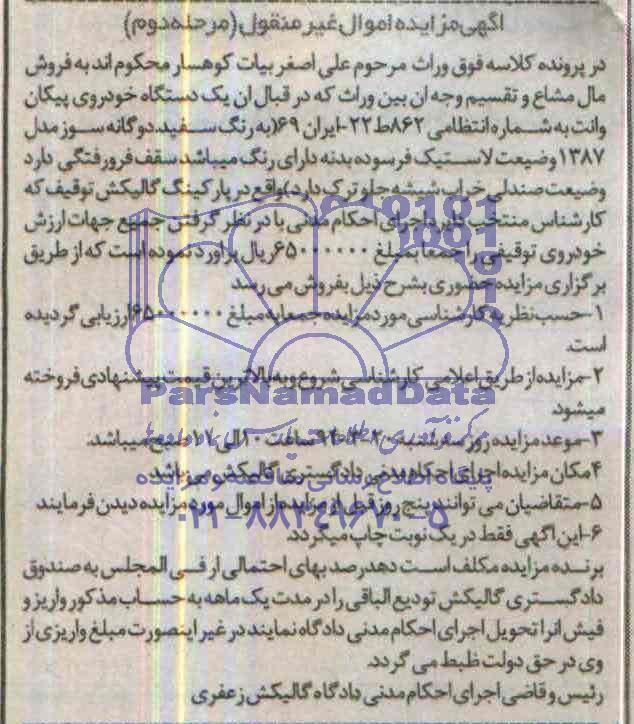 آگهی مزایده اموال غیر منقول (مرحله دوم)
در پرونده کلاسه فوق وراث مرحوم علی اصغر بیات کوهسار محکوم اند به فروش
مال مشاع و تقسیم وجه ان بین وراث که در قبال ان یک دستگاه خودروی پیکان
وانت به شماره انتظامی ۸۶۲ط۲۲-ایران ۶۹(به رنگ سفید دوگانه سوز مدل
۱۳۸۷ وضیعت لاستیک فرسوده بدنه دارای رنگ میباشد سقف فرورفتگی دارد
وضیعت صندلی خراب شیشه جلو ترک دارد)واقع در پارکینگ گالیکش توقیف که
کارشناس منتخب اجرای احکام مدنی با در نظر گرفتن جمیع جهات ارزش
خودروی توقیفی را جمعا بمبلغ ۶۵۰۰۰۰۰۰ریال براورد نموده است که از طریق
برگزاری مزایده حضوری بشرح ذیل بفروش می رسد
۱-حسب نظریه کارشناسی مورد مزایده جمعابه مبلغ ۶۵۰۰۰۰۰۰ارزیابی گردیده
است.
۲-مزایده از طریق اعلامی کارشناسی شروع و به بالاترین قیمت پیشنهادی فروخته
میشود
۳-موعد مزایده روز ساعت ۱۰الی ۱۱ صبح میباشد.
۴مکان مزایده اجرای احکام مدنی دادگستری گالیکش می باشد.
۵-متقاضیان می توانند پنج روز قبل از مزایده از اموال مورد مزایده دیدن فرمایند
۶-این اگهی فقط در یک نوبت چاپ میگردد.
برنده مزایده مکلف است ده درصد بهای احتمالی ارفی المجلس به صندوق
دادگستری گالیکش تودیع الباقی را در مدت یک ماهه به حساب مذکور واریز و
فیش انرا تحویل اجرای احکام مدنی دادگاه نمایند در غیر اینصورت مبلغ واریزی از
وی در حق دولت ظبط می گردد.
رئیس و قاضی اجرای احکام مدنی دادگاه گالیکش زعفری
ParsNamadData
پایگاه اطلاع رسانی مناقصه و مزایده
۰۲۱-۸۸۳۴۹۶۷۰-۵